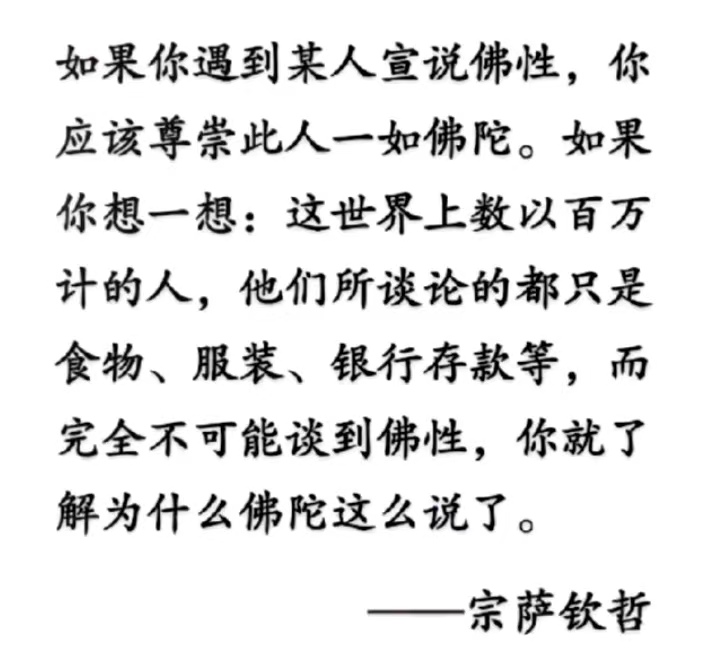 如果你遇到某人宣说佛性，你
应该尊崇此人一如佛陀。如果
你想一想：这世界上数以百万
计的人，他们所谈论的都只是
食物、服装、银行存款等，而
完全不可能谈到佛性，你就了
解为什么佛陀这么说了。
——宗萨钦哲